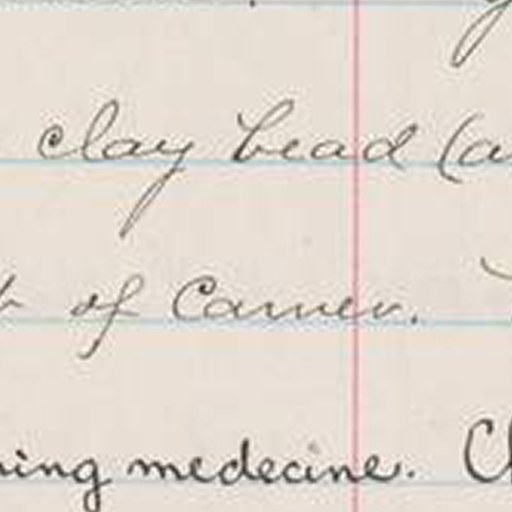 clay bead (a
of Carver.
ing medecine. Ch